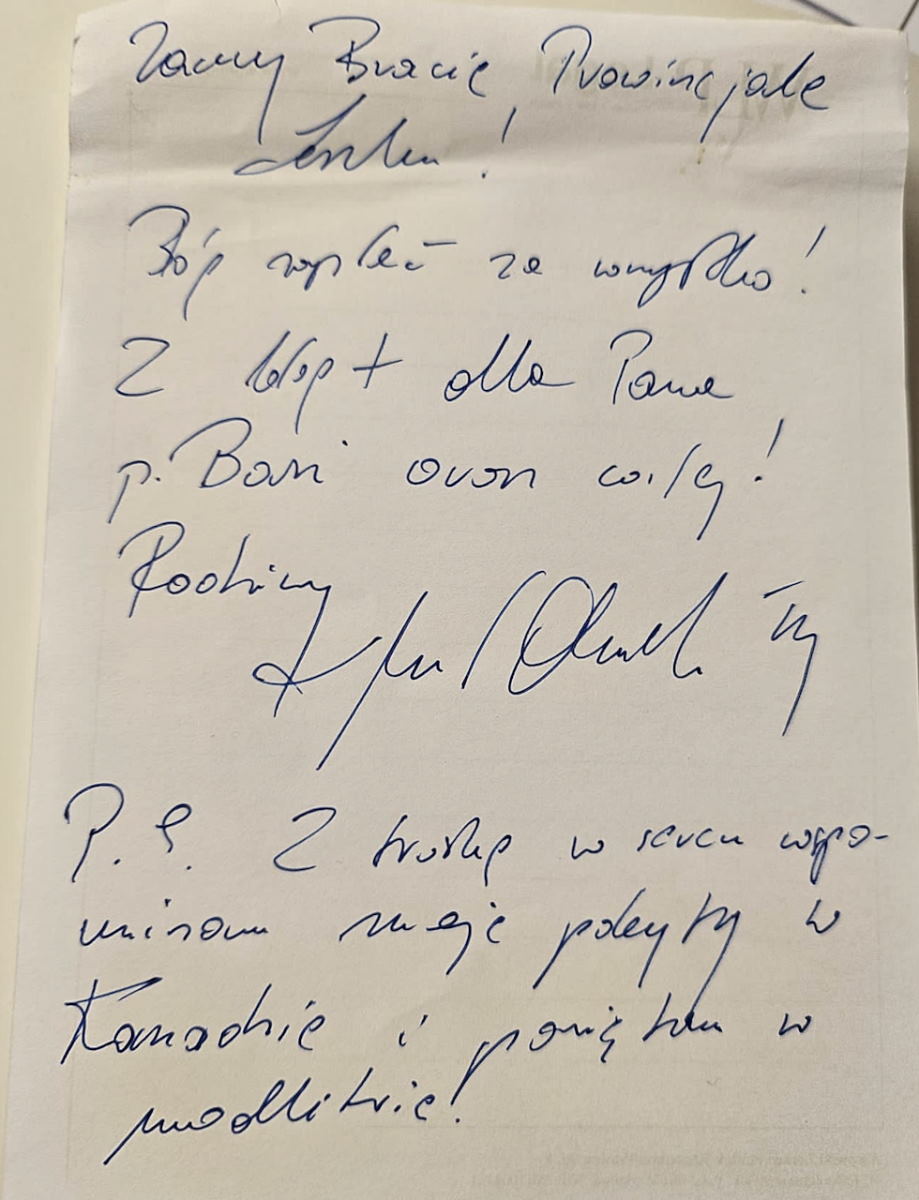 Drogi Bracie Prowincjale
Leszku!
Bóg zapłać za wszystko!
Z błog + dla Pana
p. Basi oraz całej!
Rodziny
P.S. Z troską w sercu wspo-
minam moje pobyty w
Kanadzie i pamiętam w
modlitwie!